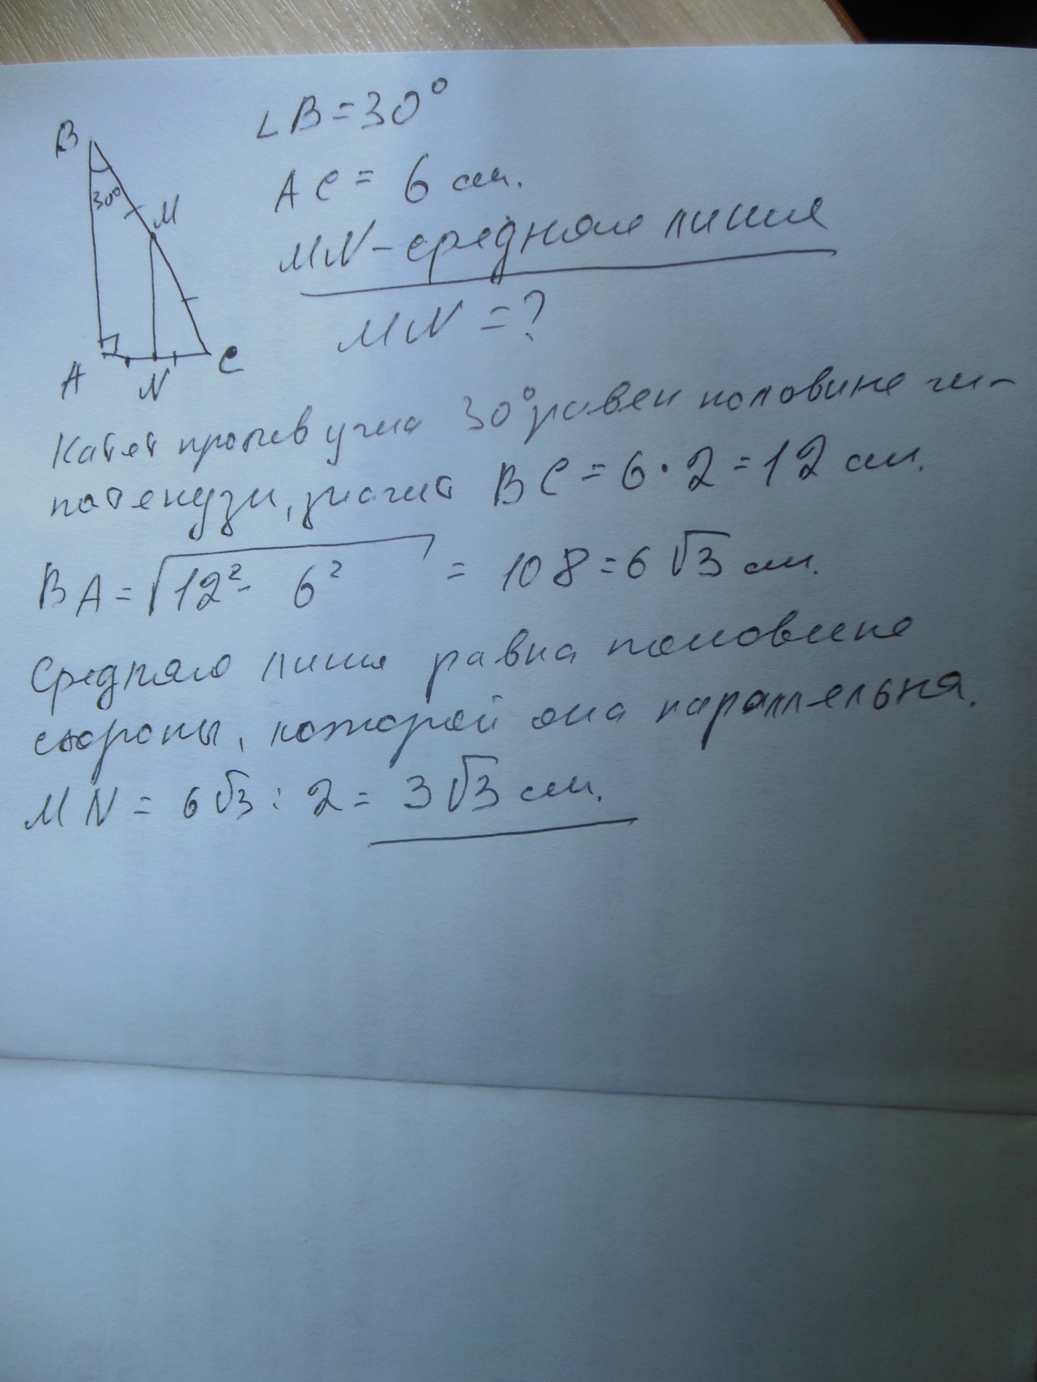 B
30°
M
A
N
C
∠B=30°
AC = 6 см.
MN - средняя линия
MN = ?
Катет против угла 30° равен половине ги-
потенузи, значит BC = 6 · 2 = 12 см.
BA = √12² - 6² = 108 = 6√3 см.
Средняя линия равна половине
стороны, которой она параллельна.
MN = 6√3 : 2 = 3√3 см.